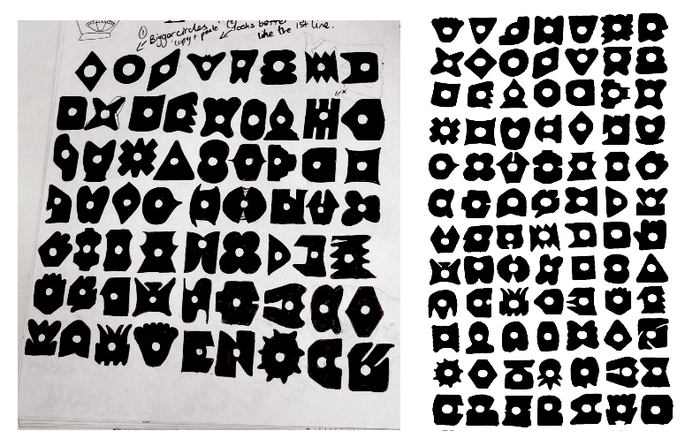 ① Bigger circles. ② looks better
copy + paste like the 1st line.